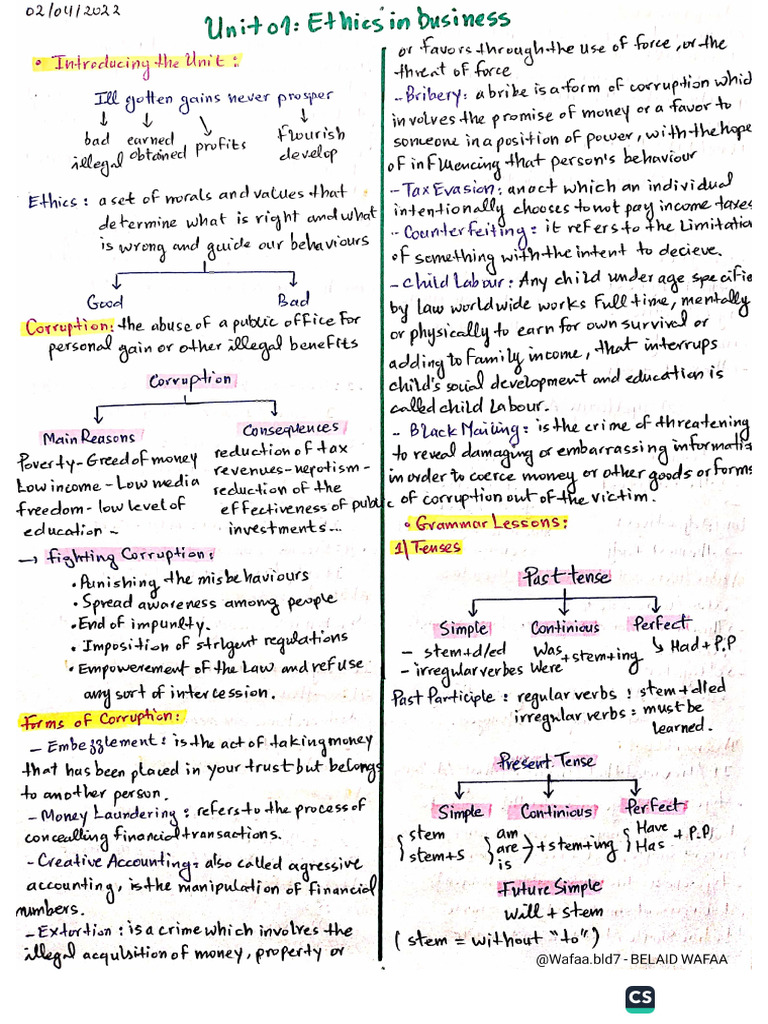 02/04/2022
Unit 01: Ethics in business
• Introducing the Unit:
Ill gotten gains never prosper
bad earned profits flourish
illegal obtained develop
Ethics: a set of morals and values that
determine what is right and what
is wrong and guide our behaviours
Good Bad
Corruption: the abuse of a public office for
personal gain or other illegal benefits
Corruption
Main Reasons Consequences
Poverty - Greed of money reduction of tax
Low income - Low media revenues - nepotism -
freedom - low level of reduction of the
education ~ effectiveness of public
investments...
→ fighting Corruption:
• Punishing the misbehaviours
• Spread awareness among people
• End of impunity.
• Imposition of strigent regulations
• Empowerement of the Law and refuse
any sort of intercession.
Forms of Corruption:
- Embezzlement: is the act of taking money
that has been placed in your trust but belongs
to another person.
- Money Laundering: refers to the process of
concealling financial transactions.
- Creative Accounting: also called agressive
accounting, is the manipulation of financial
numbers.
- Extortion: is a crime which involves the
illegal acquisition of money, property or
or favors through the use of force, or the
threat of force
- Bribery: a bribe is a form of corruption which
involves the promise of money or a favor to
someone in a position of power, with the hope
of influencing that person's behaviour
- Tax Evasion: an act which an individual
intentionally chooses to not pay income taxes
- Counterfeiting: it refers to the Limitatio
of something with the intent to decieve.
- Child Labour: Any child under age specifie
by law worldwide works full time, mentally
or physically to earn for own survival or
adding to family income, that interrups
child's social development and education is
called child Labour.
- Black Mailing: is the crime of threatening
to reveal damaging or embarrassing informatio
in order to coerce money or other goods or forms
of corruption out of the victim.
• Grammar Lessons:
1) Tenses
Past tense
Simple Continious Perfect
- stem + d/ed Was + stem + ing Had + P.P
- irregular verbes Were
Past Participle: regular verbs: stem + d/ed
irregular verbs: must be
learned.
Present Tense
Simple Continious Perfect
stem am Have
stem + s are + stem + ing Has + P.P
is
Future Simple
will + stem
(stem = without "to")
@Wafaa.bld7 - BELAID WAFAA
CS